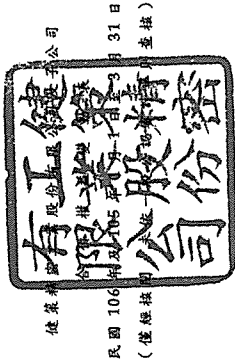 健策精密工業股份有限公司及子公司
民國 106 年及 105 年 1 月 1 日至 3 月 31 日
(僅經核閱,未依一般公認審計準則查核)
健策精密
工業股份
有限公司